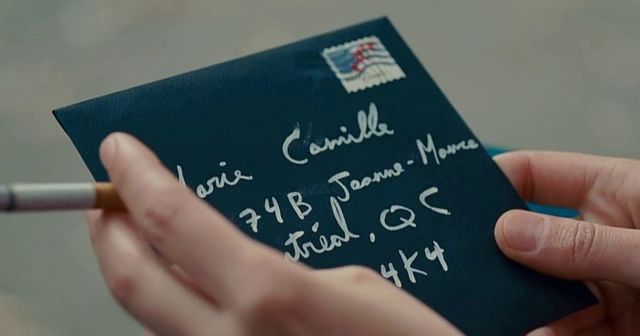 arie Camille
74B Jeanne-Mance
tréal, QC
4K4